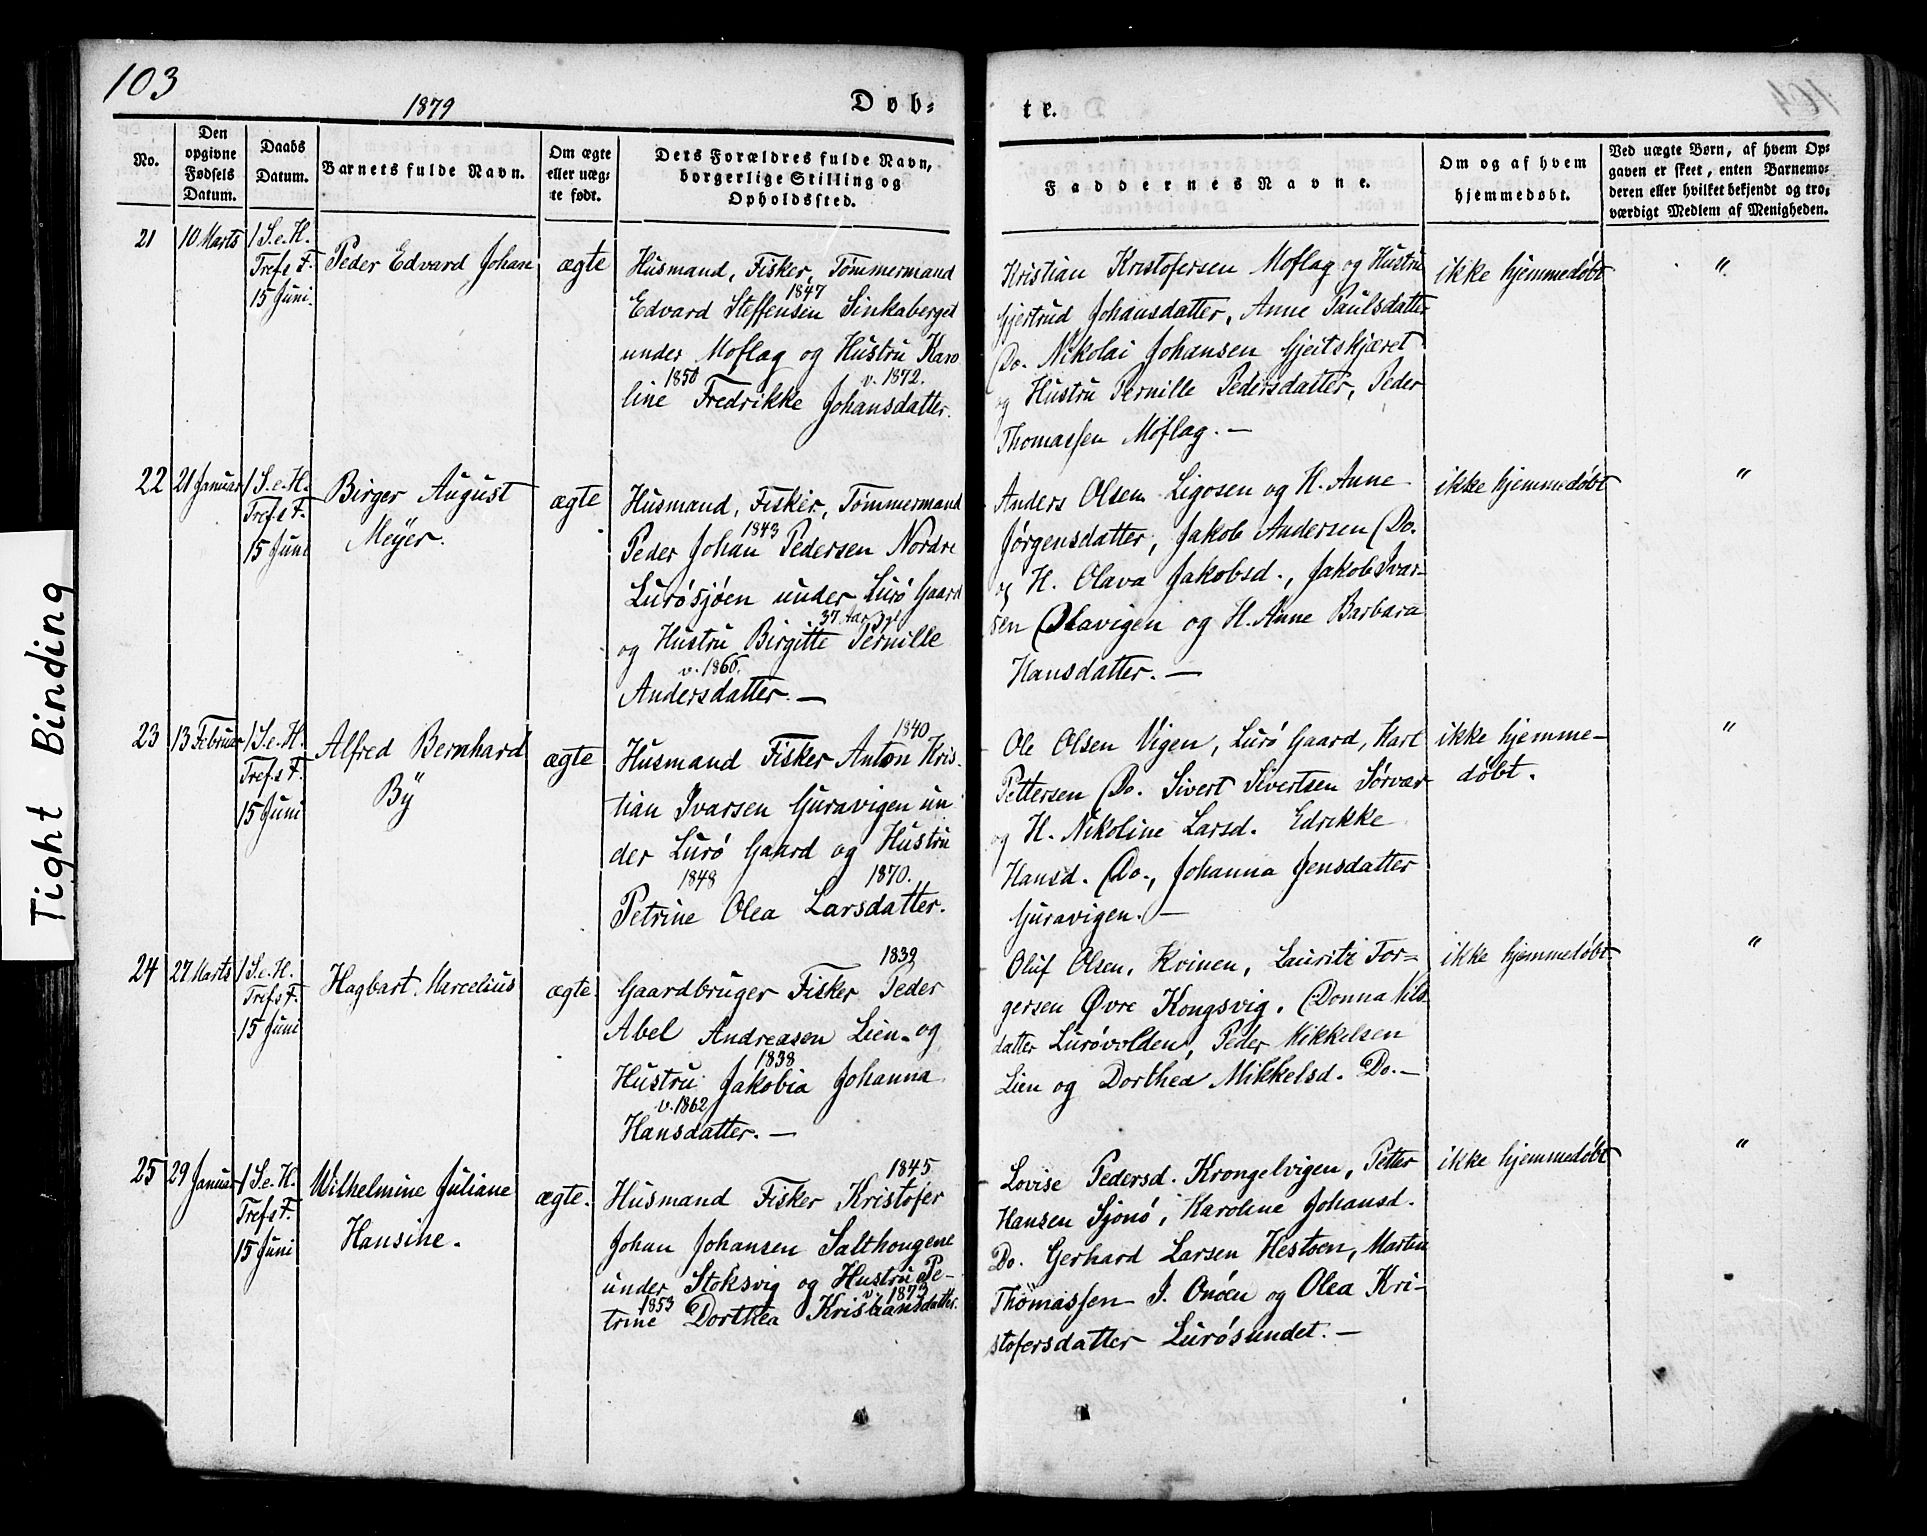 103
1879
Døb-
te.
No.
Den opgivne Fødsels Datum.
Daabs Datum.
Barnets fulde Navn.
Om ægte eller uægte født.
Ders Forældres fulde Navn, borgerlige Stilling og Opholdssted.
Faddernes Navne.
Om og af hvem hjemmedøbt.
Ved uægte Børn, af hvem Op-
gaven er skeet, enten Barnemo-
deren eller hvilket bekjendt og tro-
værdigt Medlem af Menigheden.
21
10 Marts
1 S. e. H.
Tref.s F.
15 Juni.
Peder Edvard Johan
ægte
Husmand, Fisker, Tømmermand
1847
Edvard Steffensen Sinkaberget
under Moflag og Hustru Karo
1850 v. 1872.
line Fredrikke Johansdatter.
Kristian Kristofersen Moflag og Hustru
Gjertrud Johansdatter, Anne Paulsdatter
Do. Nikolai Johansen Gjeitskjæret
og Hustru Pernille Pedersdatter, Peder
Thomassen Moflag. —
ikke hjemmedøbt
"
22
21 Januar
1 S. e. H.
Tref.s F.
15 Juni
Birger August
Meÿer.
ægte
Husmand, Fisker, Tømmermand
1843
Peder Johan Pedersen Nordre
Lurøsjøen under Lurø Gaard
37 Aar gl
og Hustru Birgitte Pernille
v. 1866.
Andersdatter. —
Anders Olsen Ligosen og H. Anne
Jørgensdatter, Jakob Andersen Do.
og H. Olava Jakobsd., Jakob Ivar-
sen Olavigen og H. Anne Barbara
Hansdatter. —
ikke hjemmedøbt
"
23
13 Februar
1 S. e. H.
Tref.s F.
15 Juni
Alfred Bernhard
Bÿ
ægte
1840
Husmand Fisker Anton Kris-
tian Ivarsen Guravigen un
der Lurø Gaard og Hustru
1848 1870.
Petrine Olea Larsdatter.
Ole Olsen Vigen, Lurø Gaard, Karl
Pettersen Do. Sivert Sivertsen Sørvær
og H. Nikoline Larsd. Edrikke
Hansd. Do., Johanna Jensdatter
Guravigen. —
ikke hjemme-
døbt.
"
24
27 Marts
1 S. e. H.
Tref.s F.
15 Juni
Hagbart Marcelius
ægte.
1839
Gaardbruger Fisker Peder
Abel Andreasen Lien og
1838
Hustru Jakobia Johanna
v. 1862
Hansdatter. —
Oluf Olsen, Kvinen, Lauritz Tor-
gersen Øvre Kongsvig. Donna Nils
datter Lurøvolden, Peder Mikkelsen
Lien og Dorthea Mikkelsd. Do. —
ikke hjemmedøbt
"
25
29 Januar
1 S. e. H.
Tref.s F.
15 Juni
Wilhelmine Juliane
Hansine.
ægte.
1845
Husmand Fisker Kristofer
Johan Johansen Salthougene
under Stoksvig og Hustru Pe-
1853 v. 1873
trine Dorthea Kristiansdatter.
Lovise Pedersd. Krongelvigen, Petter
Hansen Sjonø, Karoline Johansd.
Do. Gerhard Larsen Hestøen, Martin
Thomassen I. Onøen og Olea Kri-
stofersdatter Lurøsundet. —
ikke hjemmedøbt
"
Tight Binding